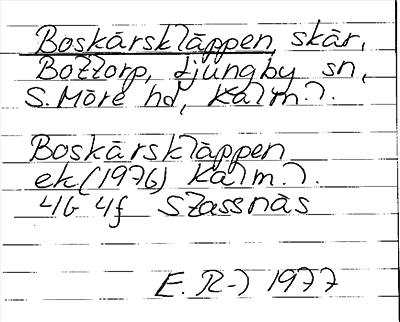 Boskärskläppen, skär,
Bottorp, Ljungby sn,
S. Möre hd, Kalm. l.
Boskärskläppen
ek (1976) Kalm. l.
4G 4f Stassnäs
E. R-) 1977